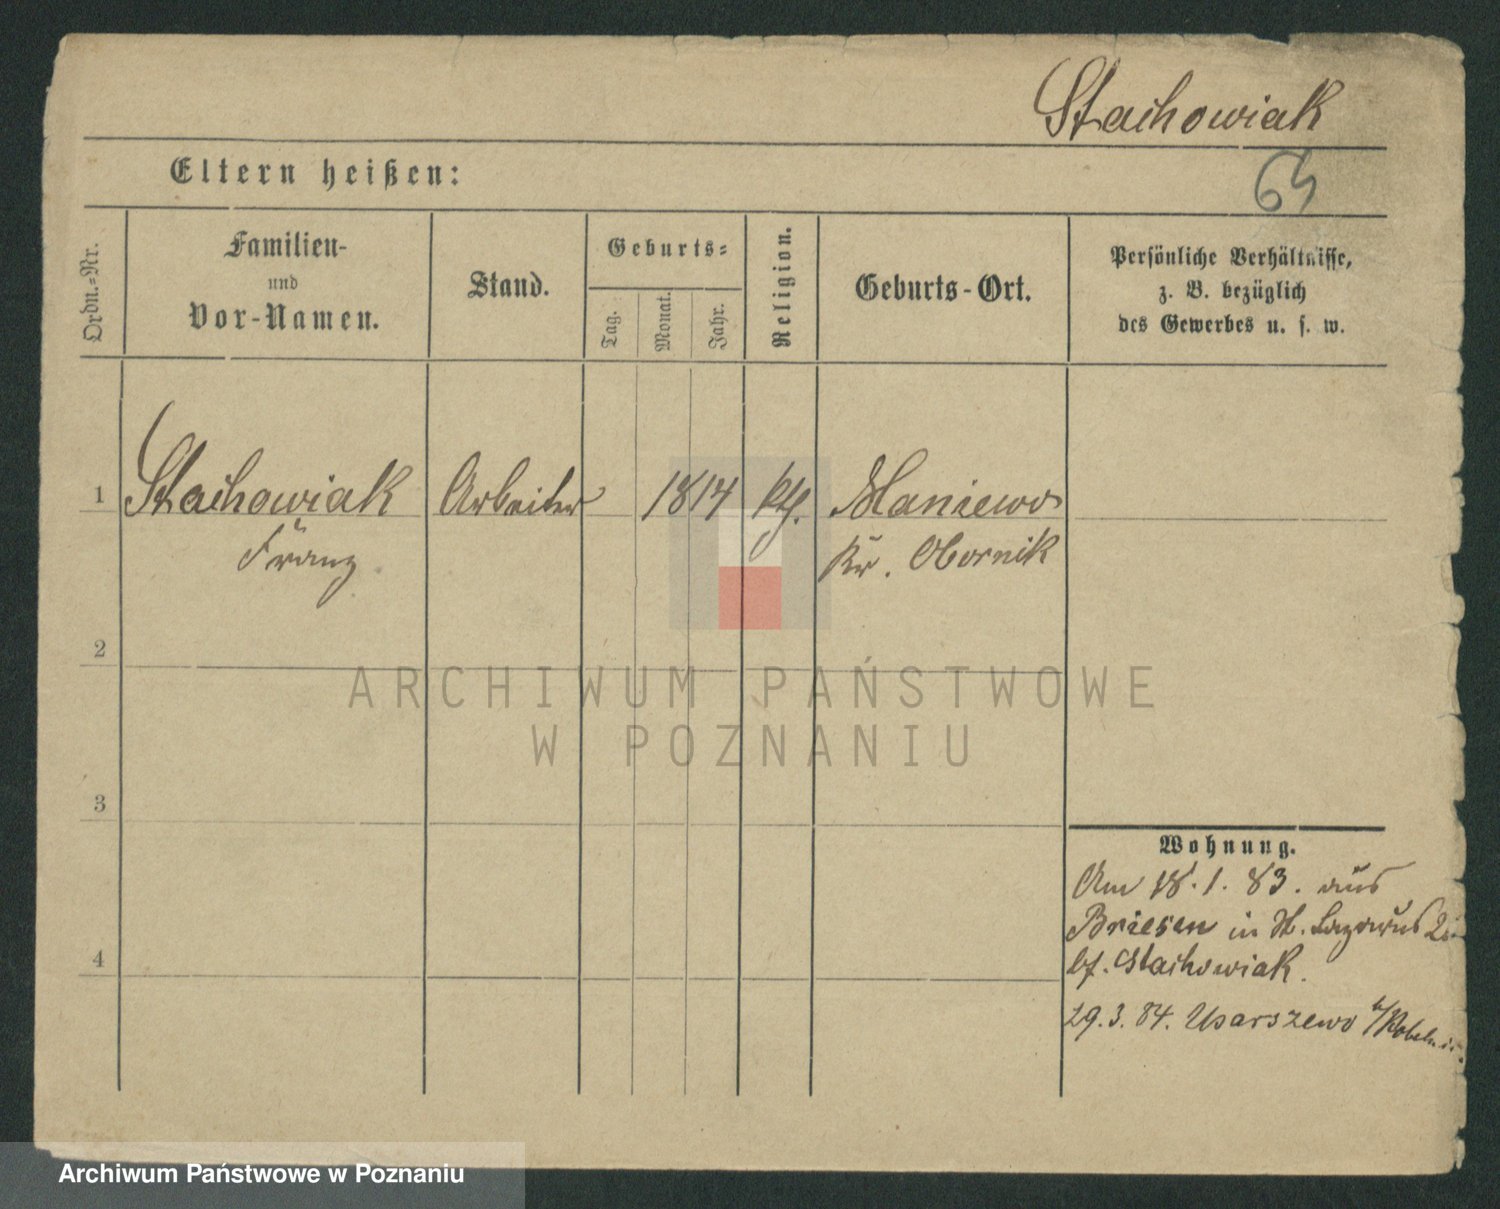 Stachowiak
Eltern heißen:
64
Ordn.-Nr.
Familien-
und
Vor-Namen.
Stand.
Geburts-
Tag.
Monat.
Jahr.
Religion.
Geburts-Ort.
Persönliche Verhältnisse,
z. B. bezüglich
des Gewerbes u. s. w.
1 Stachowiak Arbeiter 1814 kth. Maniewo
Franz Kr. Obornik
2
ARCHIWUM PAŃSTWOWE
W POZNANIU
3
Wohnung.
Am 18. 1. 83. aus
Briesen in St. Lazarus
bf. Stachowiak.
4
29. 3. 84. Usarszewo b/
Archiwum Państwowe w Poznaniu